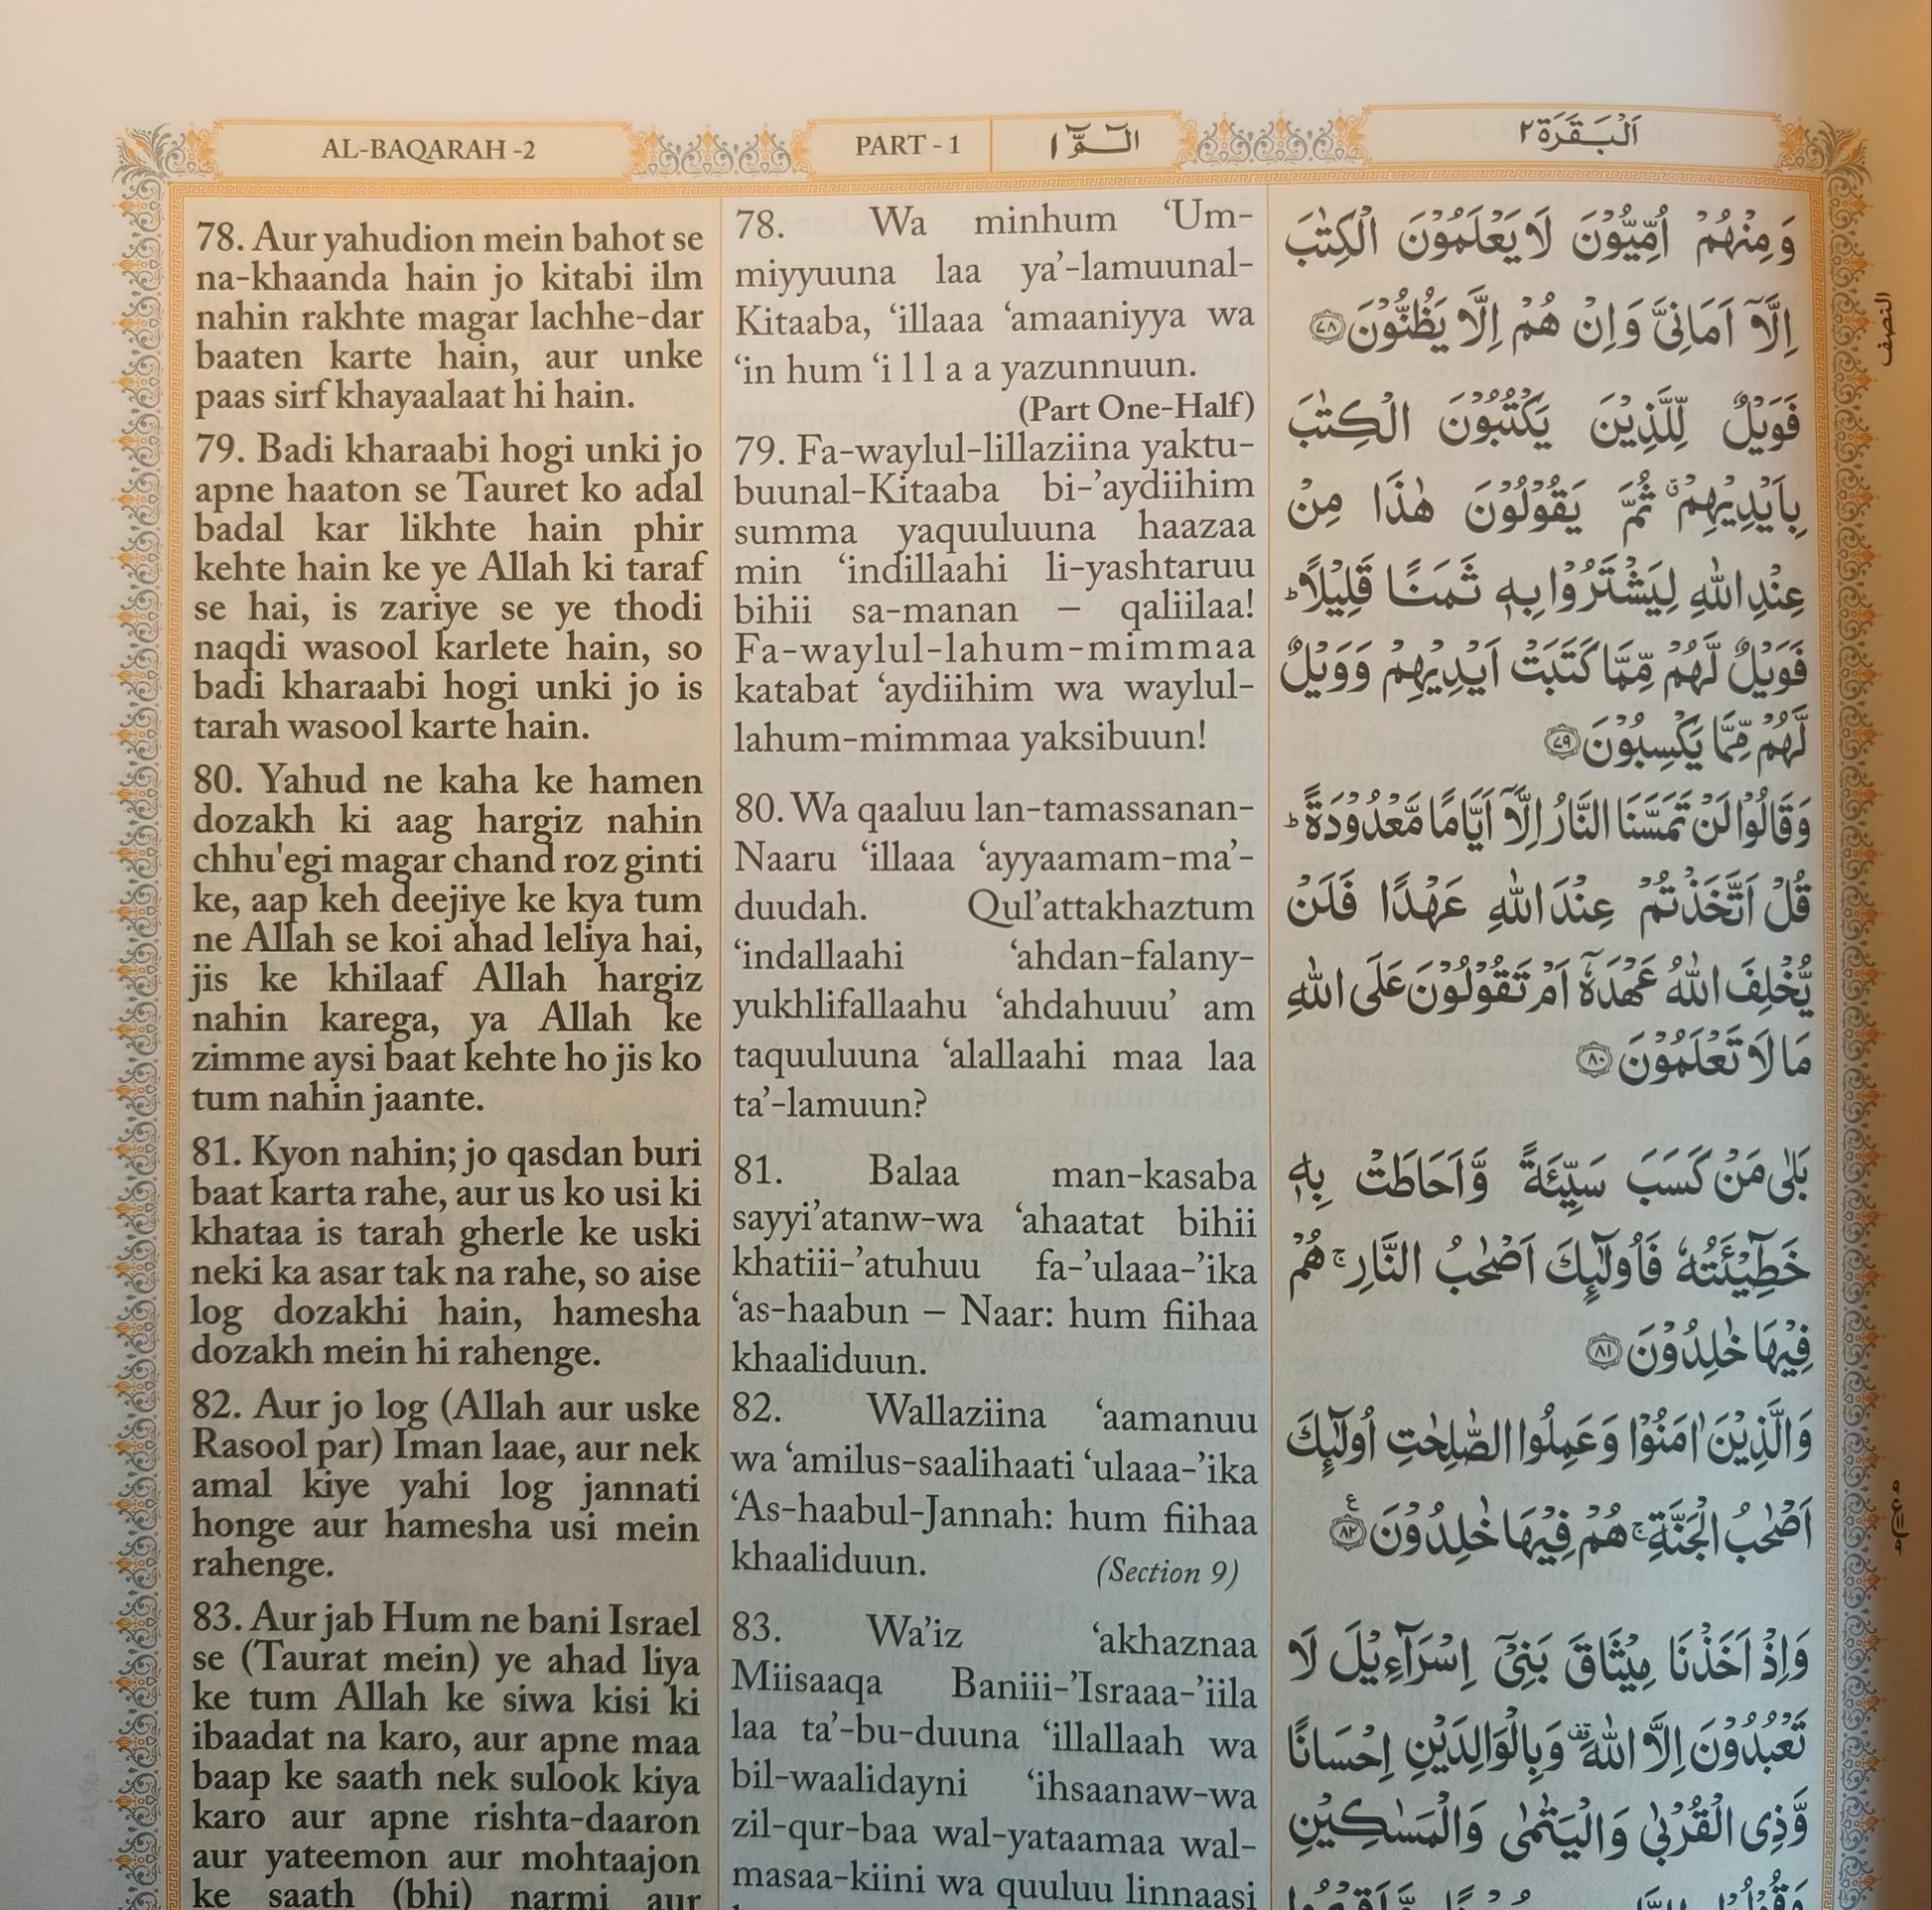 AL-BAQARAH -2
PART - 1
الٓــمّٓ ١
اَلْبَقَرَة ٢
78. Aur yahudion mein bahot se
na-khaanda hain jo kitabi ilm
nahin rakhte magar lachhe-dar
baaten karte hain, aur unke
paas sirf khayaalaat hi hain.
79. Badi kharaabi hogi unki jo
apne haaton se Tauret ko adal
badal kar likhte hain phir
kehte hain ke ye Allah ki taraf
se hai, is zariye se ye thodi
naqdi wasool karlete hain, so
badi kharaabi hogi unki jo is
tarah wasool karte hain.
80. Yahud ne kaha ke hamen
dozakh ki aag hargiz nahin
chhu'egi magar chand roz ginti
ke, aap keh deejiye ke kya tum
ne Allah se koi ahad leliya hai,
jis ke khilaaf Allah hargiz
nahin karega, ya Allah ke
zimme aysi baat kehte ho jis ko
tum nahin jaante.
81. Kyon nahin; jo qasdan buri
baat karta rahe, aur us ko usi ki
khataa is tarah gherle ke uski
neki ka asar tak na rahe, so aise
log dozakhi hain, hamesha
dozakh mein hi rahenge.
82. Aur jo log (Allah aur uske
Rasool par) Iman laae, aur nek
amal kiye yahi log jannati
honge aur hamesha usi mein
rahenge.
83. Aur jab Hum ne bani Israel
se (Taurat mein) ye ahad liya
ke tum Allah ke siwa kisi ki
ibaadat na karo, aur apne maa
baap ke saath nek sulook kiya
karo aur apne rishta-daaron
aur yateemon aur mohtaajon
ke saath (bhi) narmi aur
78. Wa minhum ‘Um-
miyyuuna laa ya’-lamuunal-
Kitaaba, ‘illaaa ‘amaaniyya wa
‘in hum ‘i l l a a yazunnuun.
(Part One-Half)
79. Fa-waylul-lillaziina yaktu-
buunal-Kitaaba bi-’aydiihim
summa yaquuluuna haazaa
min ‘indillaahi li-yashtaruu
bihii sa-manan – qaliilaa!
Fa-waylul-lahum-mimmaa
katabat ‘aydiihim wa waylul-
lahum-mimmaa yaksibuun!
80. Wa qaaluu lan-tamassanan-
Naaru ‘illaaa ‘ayyaamam-ma’-
duudah. Qul’attakhaztum
‘indallaahi ‘ahdan-falany-
yukhlifallaahu ‘ahdahuuu’ am
taquuluuna ‘alallaahi maa laa
ta’-lamuun?
81. Balaa man-kasaba
sayyi’atanw-wa ‘ahaatat bihii
khatiii-’atuhuu fa-’ulaaa-’ika
‘as-haabun – Naar: hum fiihaa
khaaliduun.
82. Wallaziina ‘aamanuu
wa ‘amilus-saalihaati ‘ulaaa-’ika
‘As-haabul-Jannah: hum fiihaa
khaaliduun. (Section 9)
83. Wa’iz ‘akhaznaa
Miisaaqa Baniii-’Israaa-’iila
laa ta’-bu-duuna ‘illallaah wa
bil-waalidayni ‘ihsaanaw-wa
zil-qur-baa wal-yataamaa wal-
masaa-kiini wa quuluu linnaasi
وَمِنْهُمْ اُمِّيُّوْنَ لَا يَعْلَمُوْنَ الْكِتٰبَ
اِلَّآ اَمَانِيَّ وَاِنْ هُمْ اِلَّا يَظُنُّوْنَ ٧٨
فَوَيْلٌ لِّلَّذِيْنَ يَكْتُبُوْنَ الْكِتٰبَ
بِاَيْدِيْهِمْ ۗ ثُمَّ يَقُوْلُوْنَ هٰذَا مِنْ
عِنْدِ اللّٰهِ لِيَشْتَرُوْا بِهٖ ثَمَنًا قَلِيْلًا ؕ
فَوَيْلٌ لَّهُمْ مِّمَّا كَتَبَتْ اَيْدِيْهِمْ وَوَيْلٌ
لَّهُمْ مِّمَّا يَكْسِبُوْنَ ٧٩
وَقَالُوْا لَنْ تَمَسَّنَا النَّارُ اِلَّآ اَيَّامًا مَّعْدُوْدَةً ؕ
قُلْ اَتَّخَذْتُمْ عِنْدَ اللّٰهِ عَهْدًا فَلَنْ
يُّخْلِفَ اللّٰهُ عَهْدَهٗٓ اَمْ تَقُوْلُوْنَ عَلَى اللّٰهِ
مَا لَا تَعْلَمُوْنَ ٨٠
بَلٰى مَنْ كَسَبَ سَيِّئَةً وَّاَحَاطَتْ بِهٖ
خَطِيْٓئَتُهٗ فَاُولٰٓئِكَ اَصْحٰبُ النَّارِ ۚ هُمْ
فِيْهَا خٰلِدُوْنَ ٨١
وَالَّذِيْنَ اٰمَنُوْا وَعَمِلُوا الصّٰلِحٰتِ اُولٰٓئِكَ
اَصْحٰبُ الْجَنَّةِ ۚ هُمْ فِيْهَا خٰلِدُوْنَ ٨٢ ع
وَاِذْ اَخَذْنَا مِيْثَاقَ بَنِيْٓ اِسْرَآءِيْلَ لَا
تَعْبُدُوْنَ اِلَّا اللّٰهَ قف وَبِالْوَالِدَيْنِ اِحْسَانًا
وَّذِى الْقُرْبٰى وَالْيَتٰمٰى وَالْمَسٰكِيْنِ
النصف